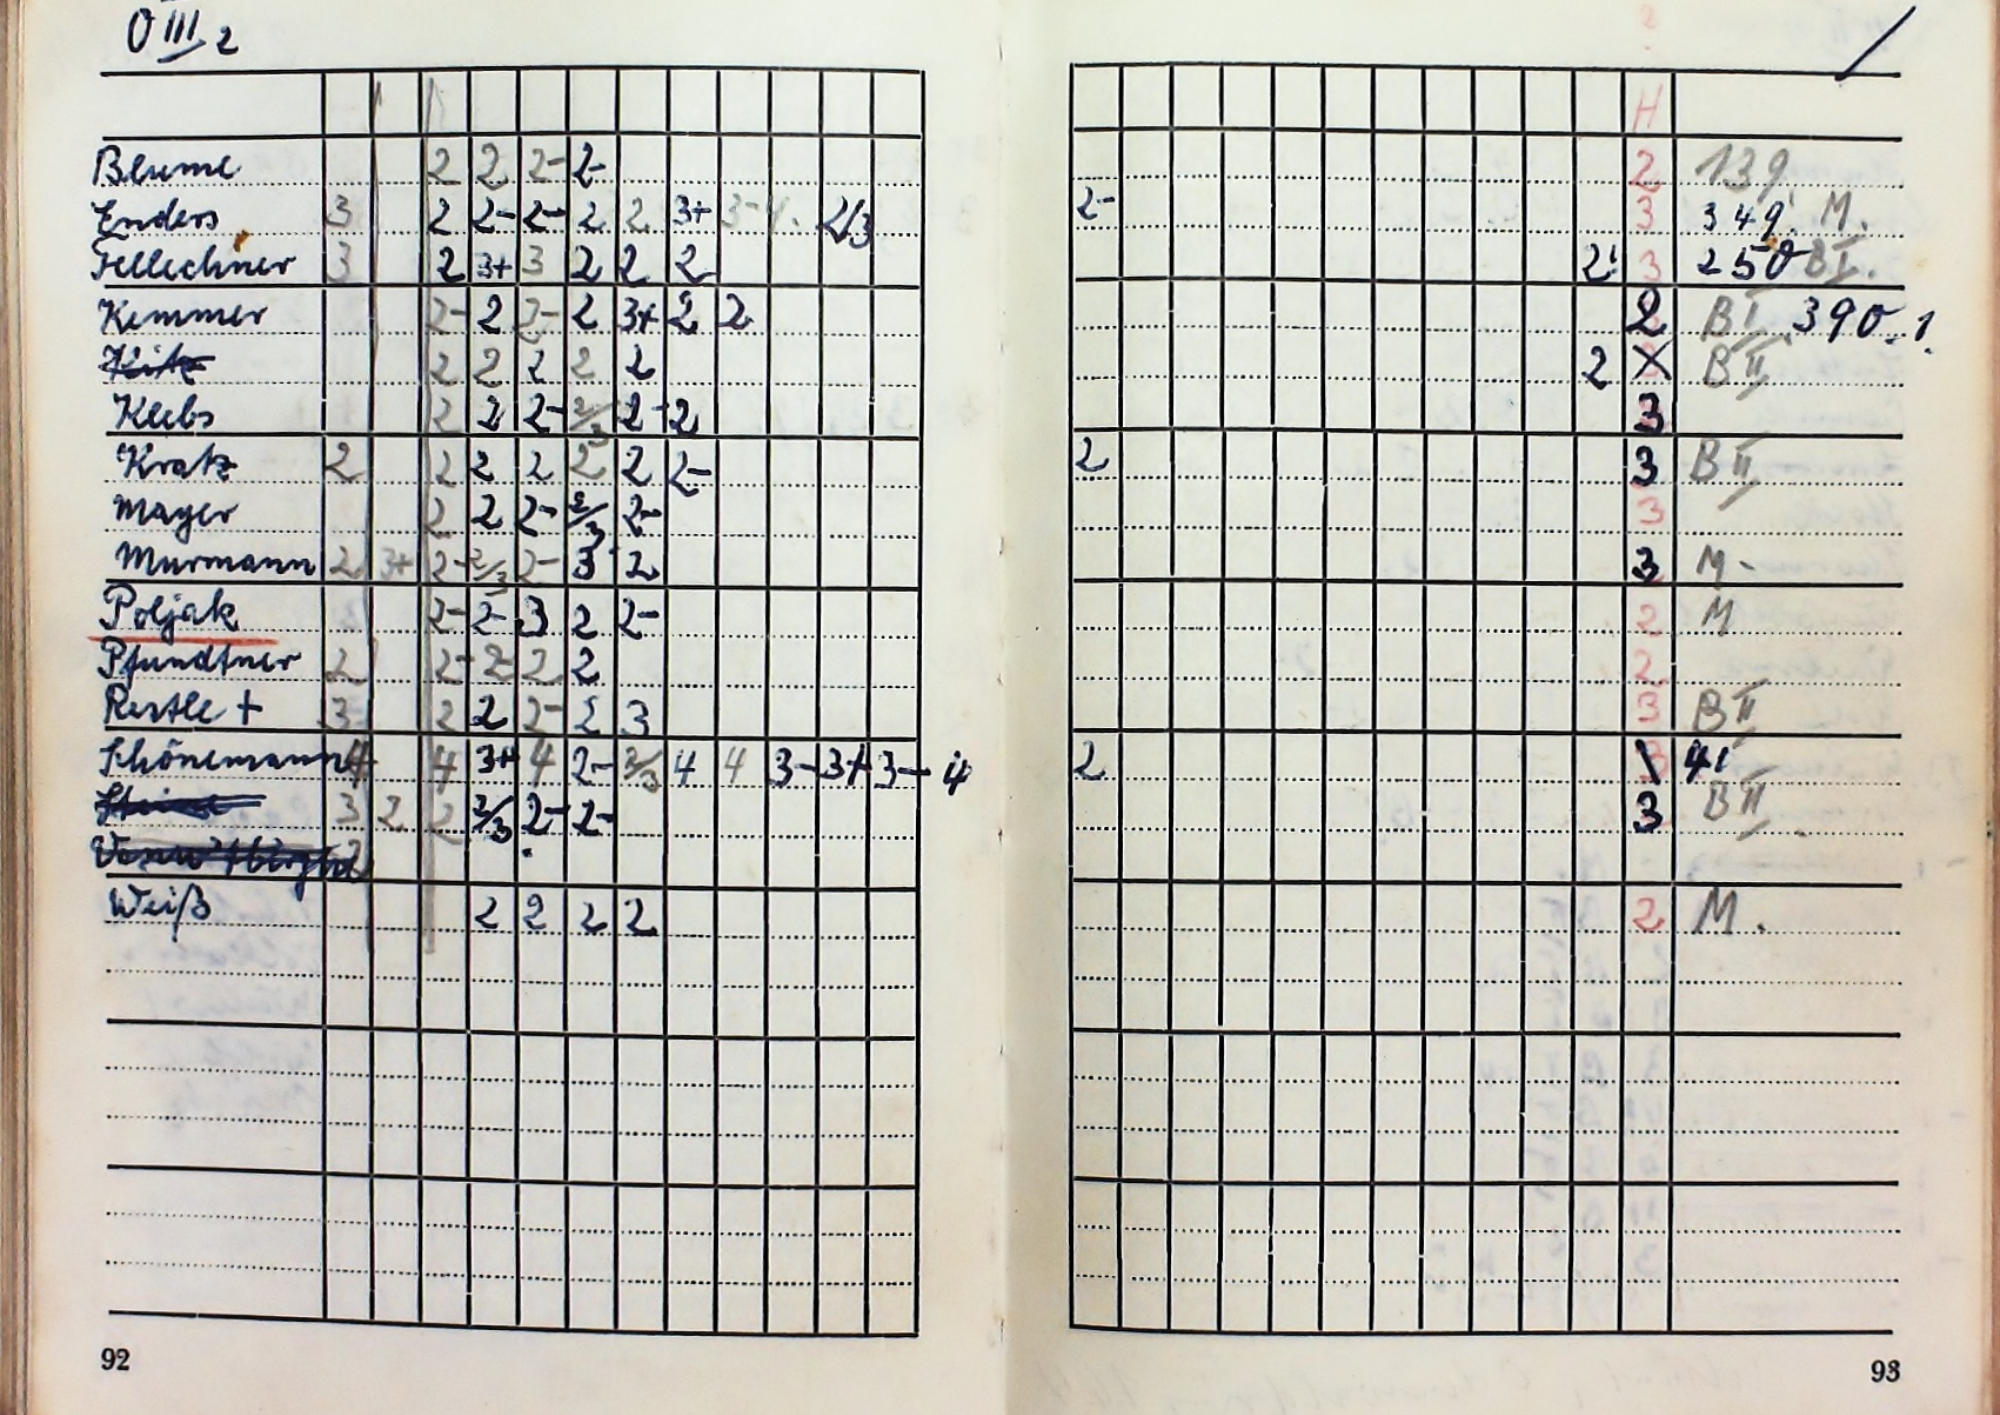 O III 2
H
Blume 2 2 2- 2- 2 139.
Enders 3 2 2- 2- 2 2 3+ 3- 4. 2/3 2- 3 349. M.
Fellechner 3 2 3+ 3 2 2 2 2! 3 250 B I.
Kemmer 2- 2 2- 2 3+ 2 2 2 B I 390.1.
Kitz 2 2 2 2 2 2 X B II
Klebs 2 2 2- 2/3 2- 2 3
Kratz 2 2 2 2 2 2 2- 2 3 B II
Mayer 2 2 2- 2/3 2- 3
Murmann 2 3+ 2- 2/3 2- 3 2 3 M-
Poljak 3 2- 2- 3 2 2- 2 M
Pfundtner 2 2- 2- 2 2 2
Restle + 3- 2 2 2- 2 3 3 B II
Schönemann 4 4 3+ 4 2- 2/3 4 4 3- 3+ 3- 4 2 3 41
3 2 2 2/3 2- 2- 3 B II.
2
Weiß 2 2 2 2 2 M.
92
93